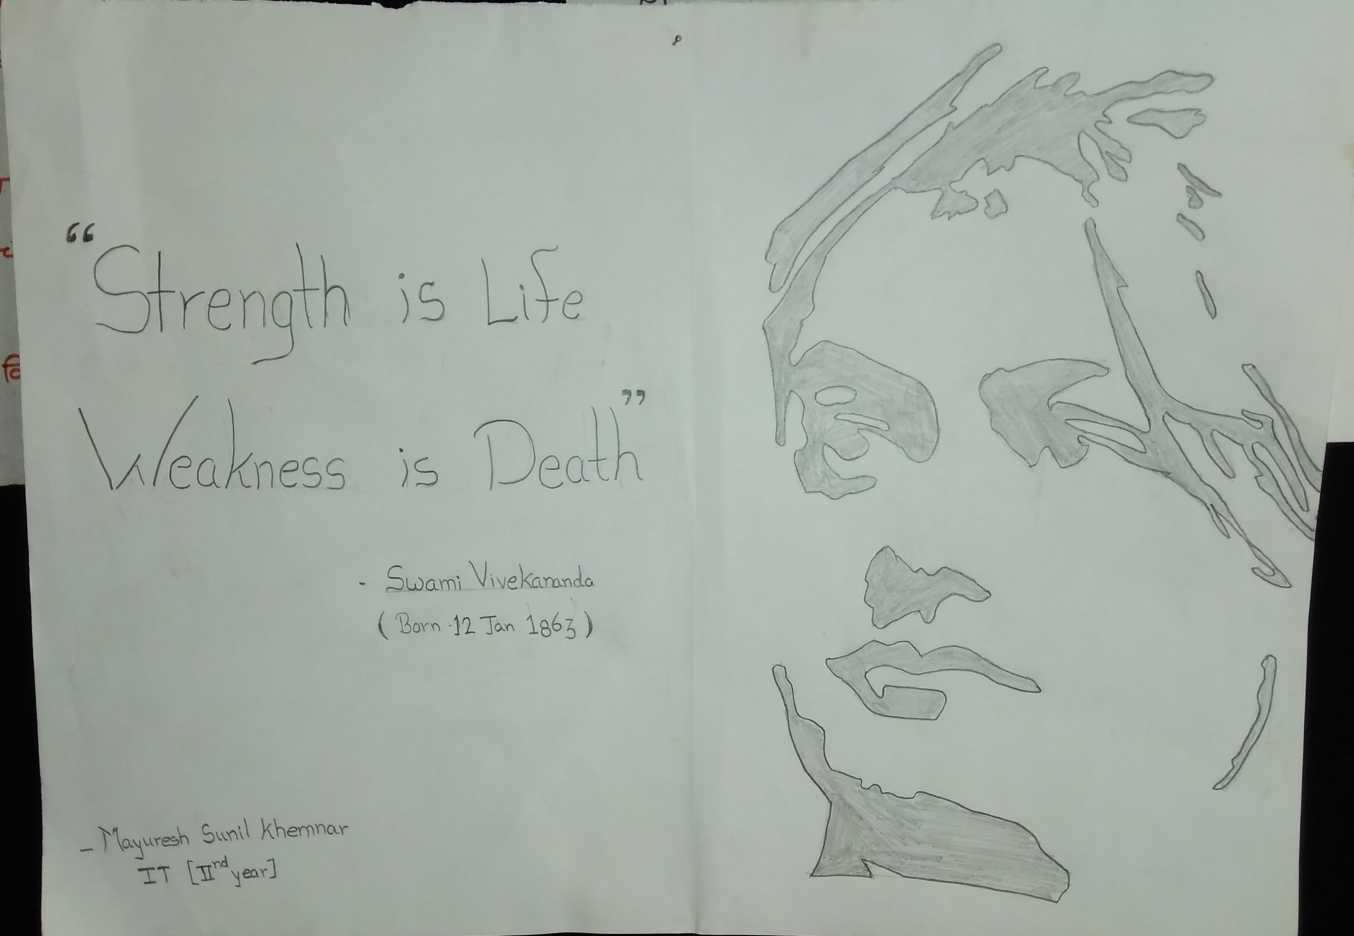 “Strength is Life
Weakness is Death”
- Swami Vivekananda
(Born 12 Jan 1863)
- Mayuresh Sunil Khemnar
IT [IInd year]